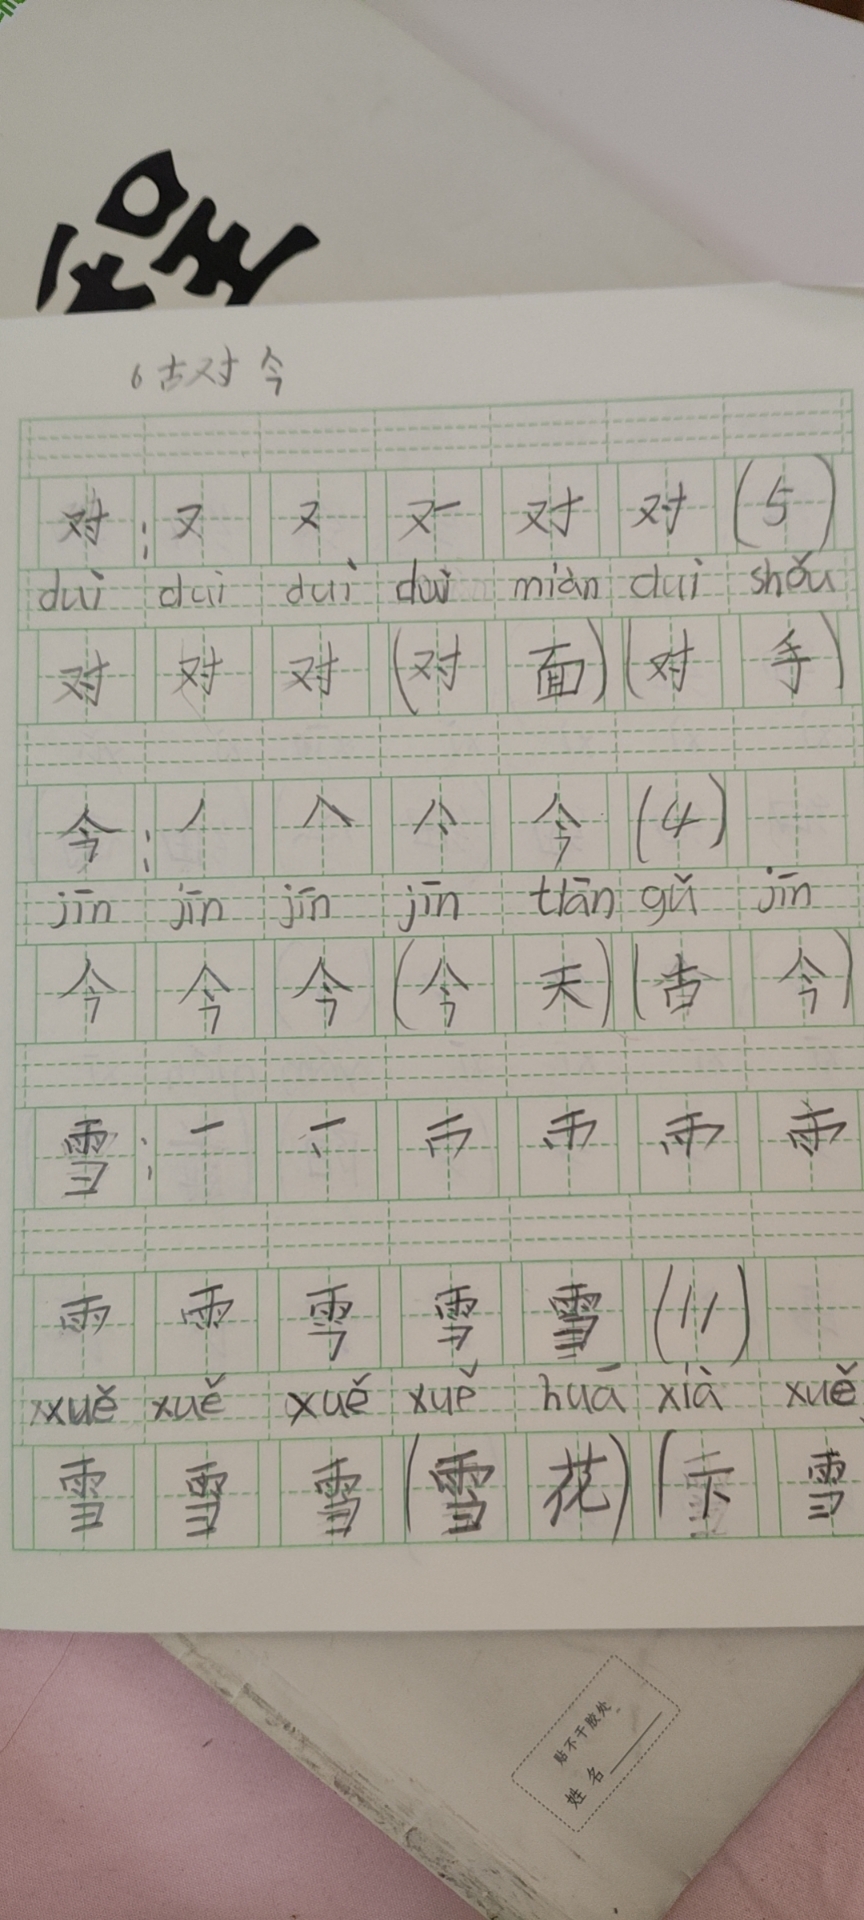 程
6 古对今
对：フ 又 又一 对 对 (5)
duì duì duì duì miàn duì shǒu
对 对 对 (对 面) (对 手)
今：丿 人 亽 今 (4)
jīn jīn jīn jīn tiān gǔ jīn
今 今 今 (今 天) (古 今)
雪：一
雨 雨 雪 雪 (11)
xuě xuě xuě xuě huā xià xuě
雪 雪 雪 (雪 花) (下 雪
贴不干胶处
姓名